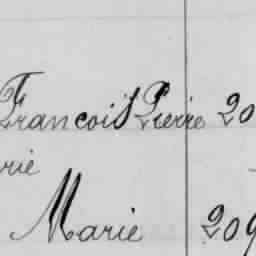 Francois Pierre 20
rie
Marie 209